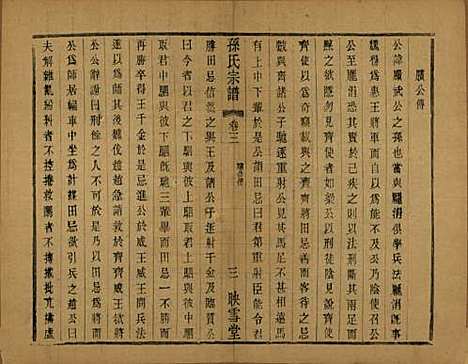 臏公傳
公諱臏武公之孫也與龐涓俱學兵法龐涓既事魏
得為惠王將軍而自以為能不及公乃陰使召公
公至龐涓恐其賢於己疾之則以法刑斷其兩足而
黥之欲隱勿見齊使者如梁公以刑徒陰見說齊使
齊使以為奇竊載與之齊齊將田忌善而客待之忌
數與齊諸公子馳逐重射公見其馬足不甚相遠馬
有上中下輩於是公謂田忌曰君第重射臣能令君
孫氏宗譜 卷三 臏公傳 三 映雪堂
勝田忌信然之與王及諸公子逐射千金及臨質公
曰今者以君之下駟與彼上駟取君上駟與彼中駟
取君中駟與彼下駟既馳三輩畢而田忌一不勝而
再勝卒得王千金於是忌進公於威王威王問兵法
遂以為師其後魏伐趙趙急請救於齊齊威王欲將
公公辭謝曰刑餘之人不可於是乃以田忌為將而
公為師居輜車中坐為計謀田忌欲引兵之趙公曰
夫解雜亂紛糾者不控捲救鬬者不搏撠批亢擣虛